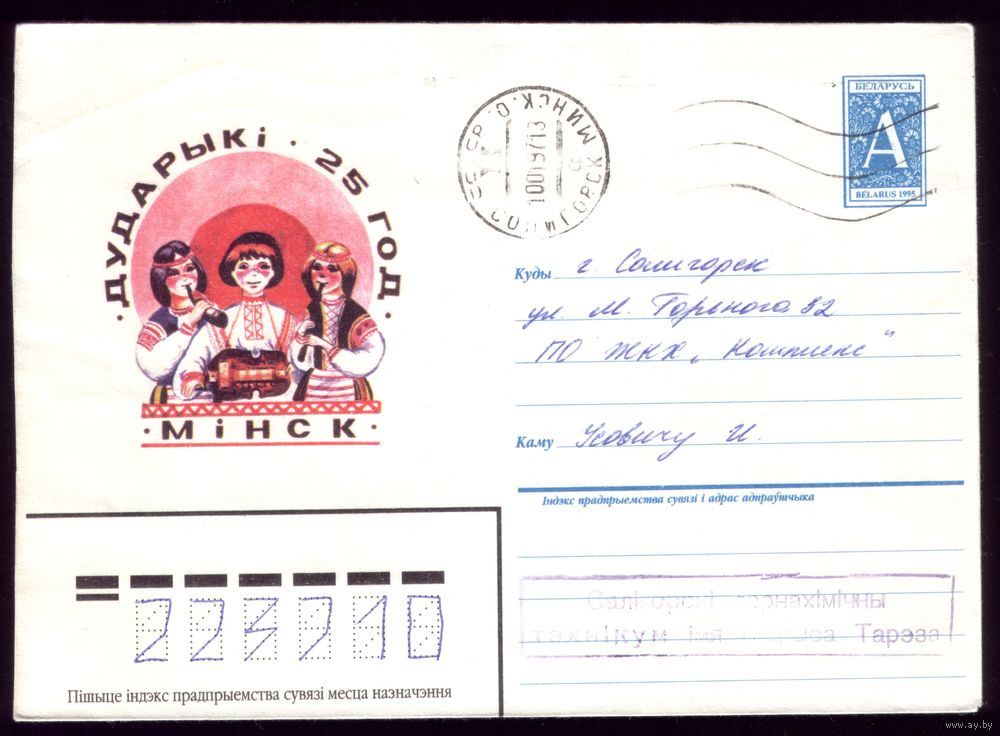 · ДУДАРЫКі · 25 ГОД ·
· МіНСК ·
СОЛИГОРСК МИНСК. О.
БЕЛАРУСЬ
А
BELARUS 1995
Куды г. Солигорск
ул. М. Горького 32
ПО ЖКХ „Комплекс"
Каму Усовичу И.
Індэкс прадпрыемства сувязі і адрас адпраўшчыка
Салігорскі горнахімічны
тэхнікум імя Тарэза
223710
Пішыце індэкс прадпрыемства сувязі месца назначэння
www.ay.by